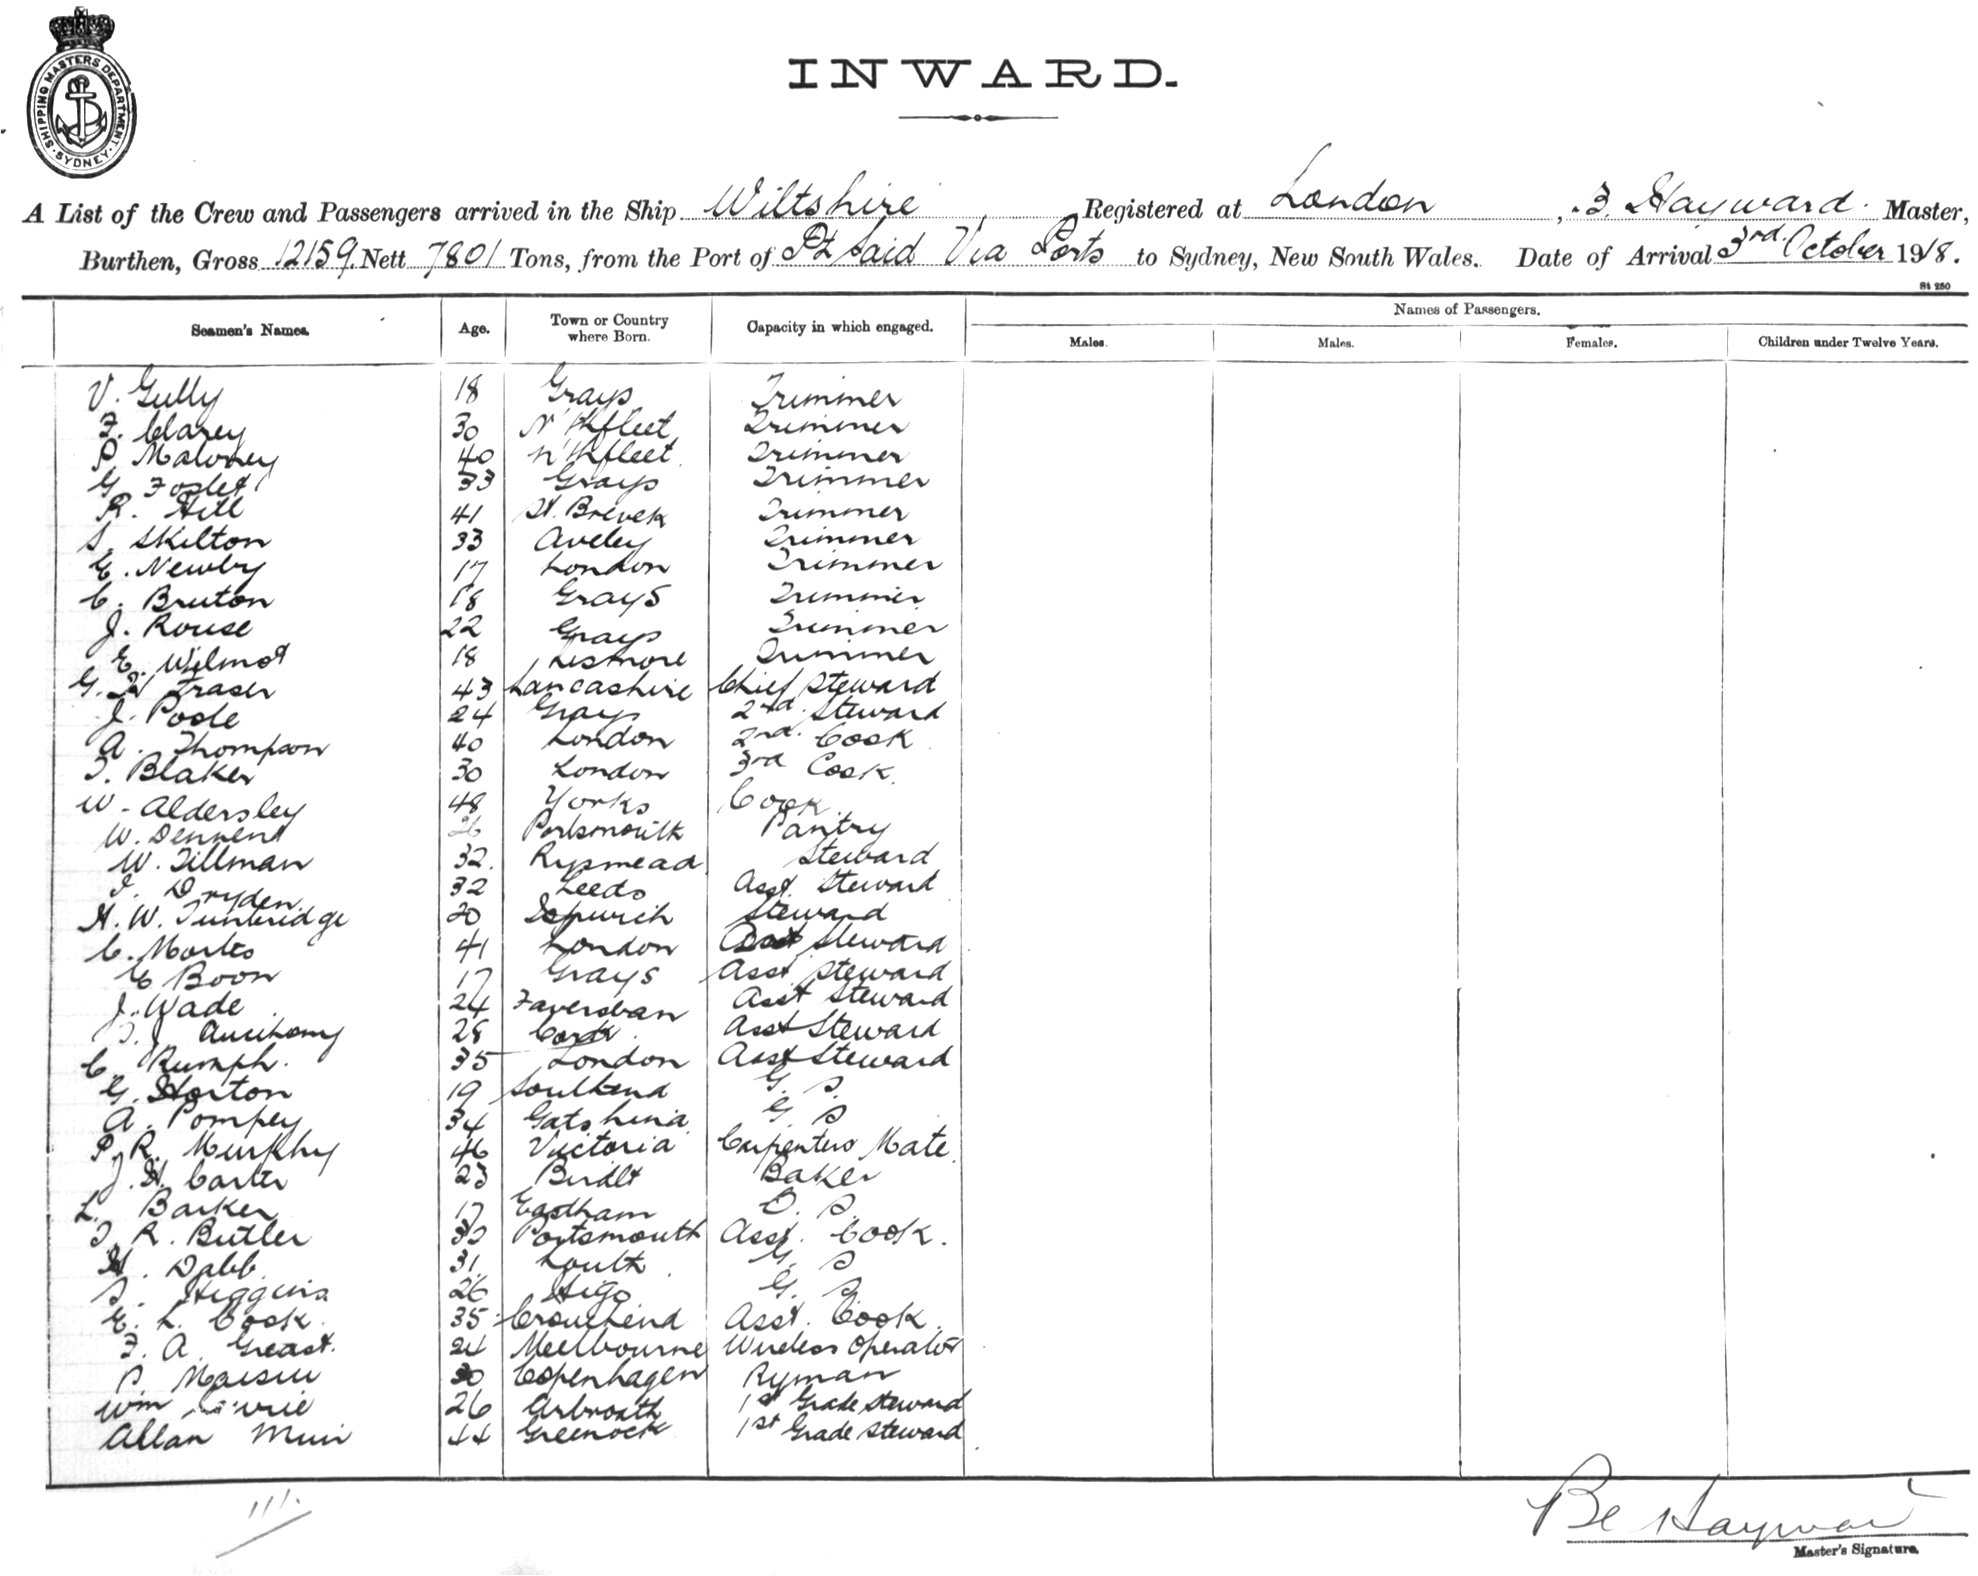 SHIPPING MASTERS DEPARTMENT. SYDNEY.
INWARD.
A List of the Crew and Passengers arrived in the Ship Wiltshire, Registered at London, B. Hayward. Master,
Burthen, Gross 12159 Nett 7801 Tons, from the Port of Pt Said Via Ports to Sydney, New South Wales. Date of Arrival 3rd October 1918.
St 250
Seamen's Names. Age. Town or Country where Born. Capacity in which engaged. Names of Passengers.
Males. Males. Females. Children under Twelve Years.
V. Gully 18 Grays Trimmer
F. Clarey 30 N'thfleet Trimmer
P Maloney 40 N'thfleet Trimmer
G. 33 Grays Trimmer
R. Hill 41 Trimmer
S. Skilton 33 Aveley Trimmer
E. Newby 17 London Trimmer
C. Bruton 18 Grays Trimmer
J. Rouse 22 Grays Trimmer
E. Wilmot 18 Lismore Trimmer
G. W Fraser 43 Lancashire Chief Steward
J. Poole 24 Grays 2nd. Steward
A. Thompson 40 London 2nd. Cook
T. Blaker 30 London 3rd Cook.
W. Aldersley 48 Yorks Cook
W. Dennent 26 Portsmouth Pantry
W. Tillman 32. Rysmead Steward
J. Dryden 32 Leeds Asst. Steward
H. W. Tunbridge 20 Ispwich Steward
C. Mortes 41 London Asst Steward
E Boon 17 Grays Asst Steward
J. Wade 24 Faversban Asst Steward
T. J 28 Cork. Asst Steward
C. Rumph. 35 London Asst Steward
G. Horton 19 Southend G. S.
A. Pompey 34 Gatshina G S
P. R. Murphy 46 Victoria Carpenters Mate.
J. H. Carter 23 Baker
L. Barker 17 Eastham O. S.
T. R. Butler 33 Portsmouth Asst. Cook.
H. Dabb. 31. Louth G. S
S. Higgins 26 Sligo G. S.
E. L. Cook. 35 Crouchend Asst. Cook.
F. A. Greast. 24 Meelbourne Wireless Operator
P. 30 Copenhagen Ryman
Wm 26 Arbroath 1st Grade Steward
Allan Muir 44 Greenock 1st Grade Steward
111.
Be Haywar
Master's Signature.